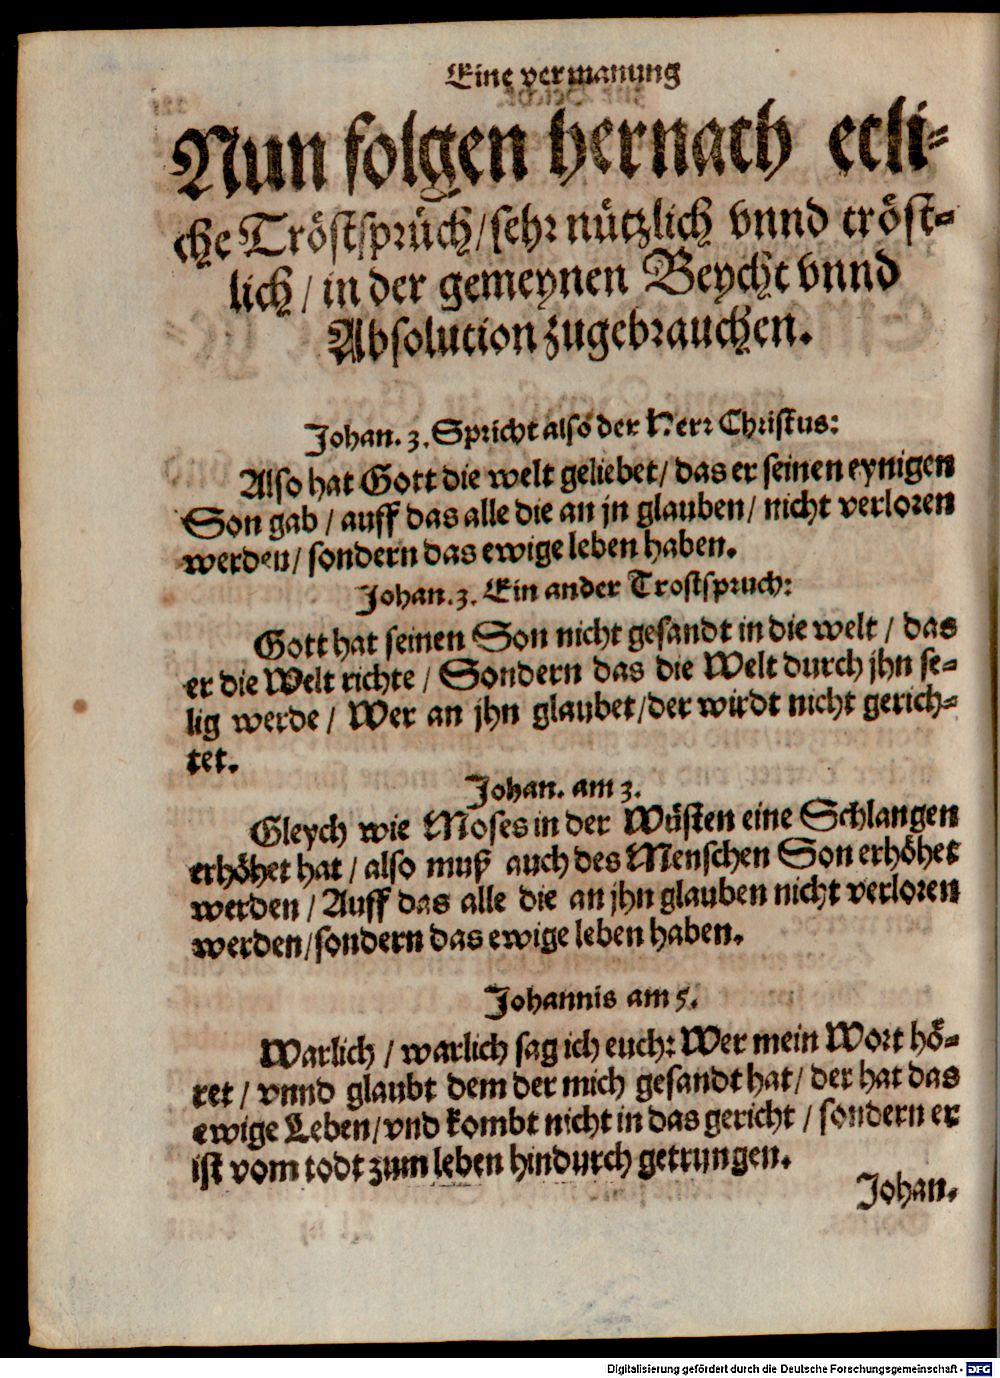 Eine vermanung
Nun folgen hernach etli-
che Tröstsprüch/sehr nützlich vnnd tröst-
lich/ in der gemeynen Beycht vnnd
Absolution zugebrauchen.
Johan. 3. Spricht also der Herr Christus:
Also hat Gott die welt geliebet/ das er seinen eynigen
Son gab / auff das alle die an jn glauben/ nicht verloren
werden/ sondern das ewige leben haben.
Johan. 3. Ein ander Trostspruch:
Gott hat seinen Son nicht gesandt in die welt / das
er die Welt richte / Sondern das die Welt durch jhn se-
lig werde / Wer an jhn glaubet/der wirdt nicht gerich-
tet.
Johan. am 3.
Gleych wie Moses in der Wüsten eine Schlangen
erhöhet hat / also muß auch des Menschen Son erhöhet
werden / Auff das alle die an jhn glauben nicht verloren
werden/sondern das ewige leben haben.
Johannis am 5.
Warlich / warlich sag ich euch: Wer mein Wort hö-
ret / vnnd glaubt dem der mich gesandt hat/ der hat das
ewige Leben/vnd kombt nicht in das gericht / sondern er
ist vom todt zum leben hindurch getrungen.
Johan.
Digitalisierung gefördert durch die Deutsche Forschungsgemeinschaft - DFG